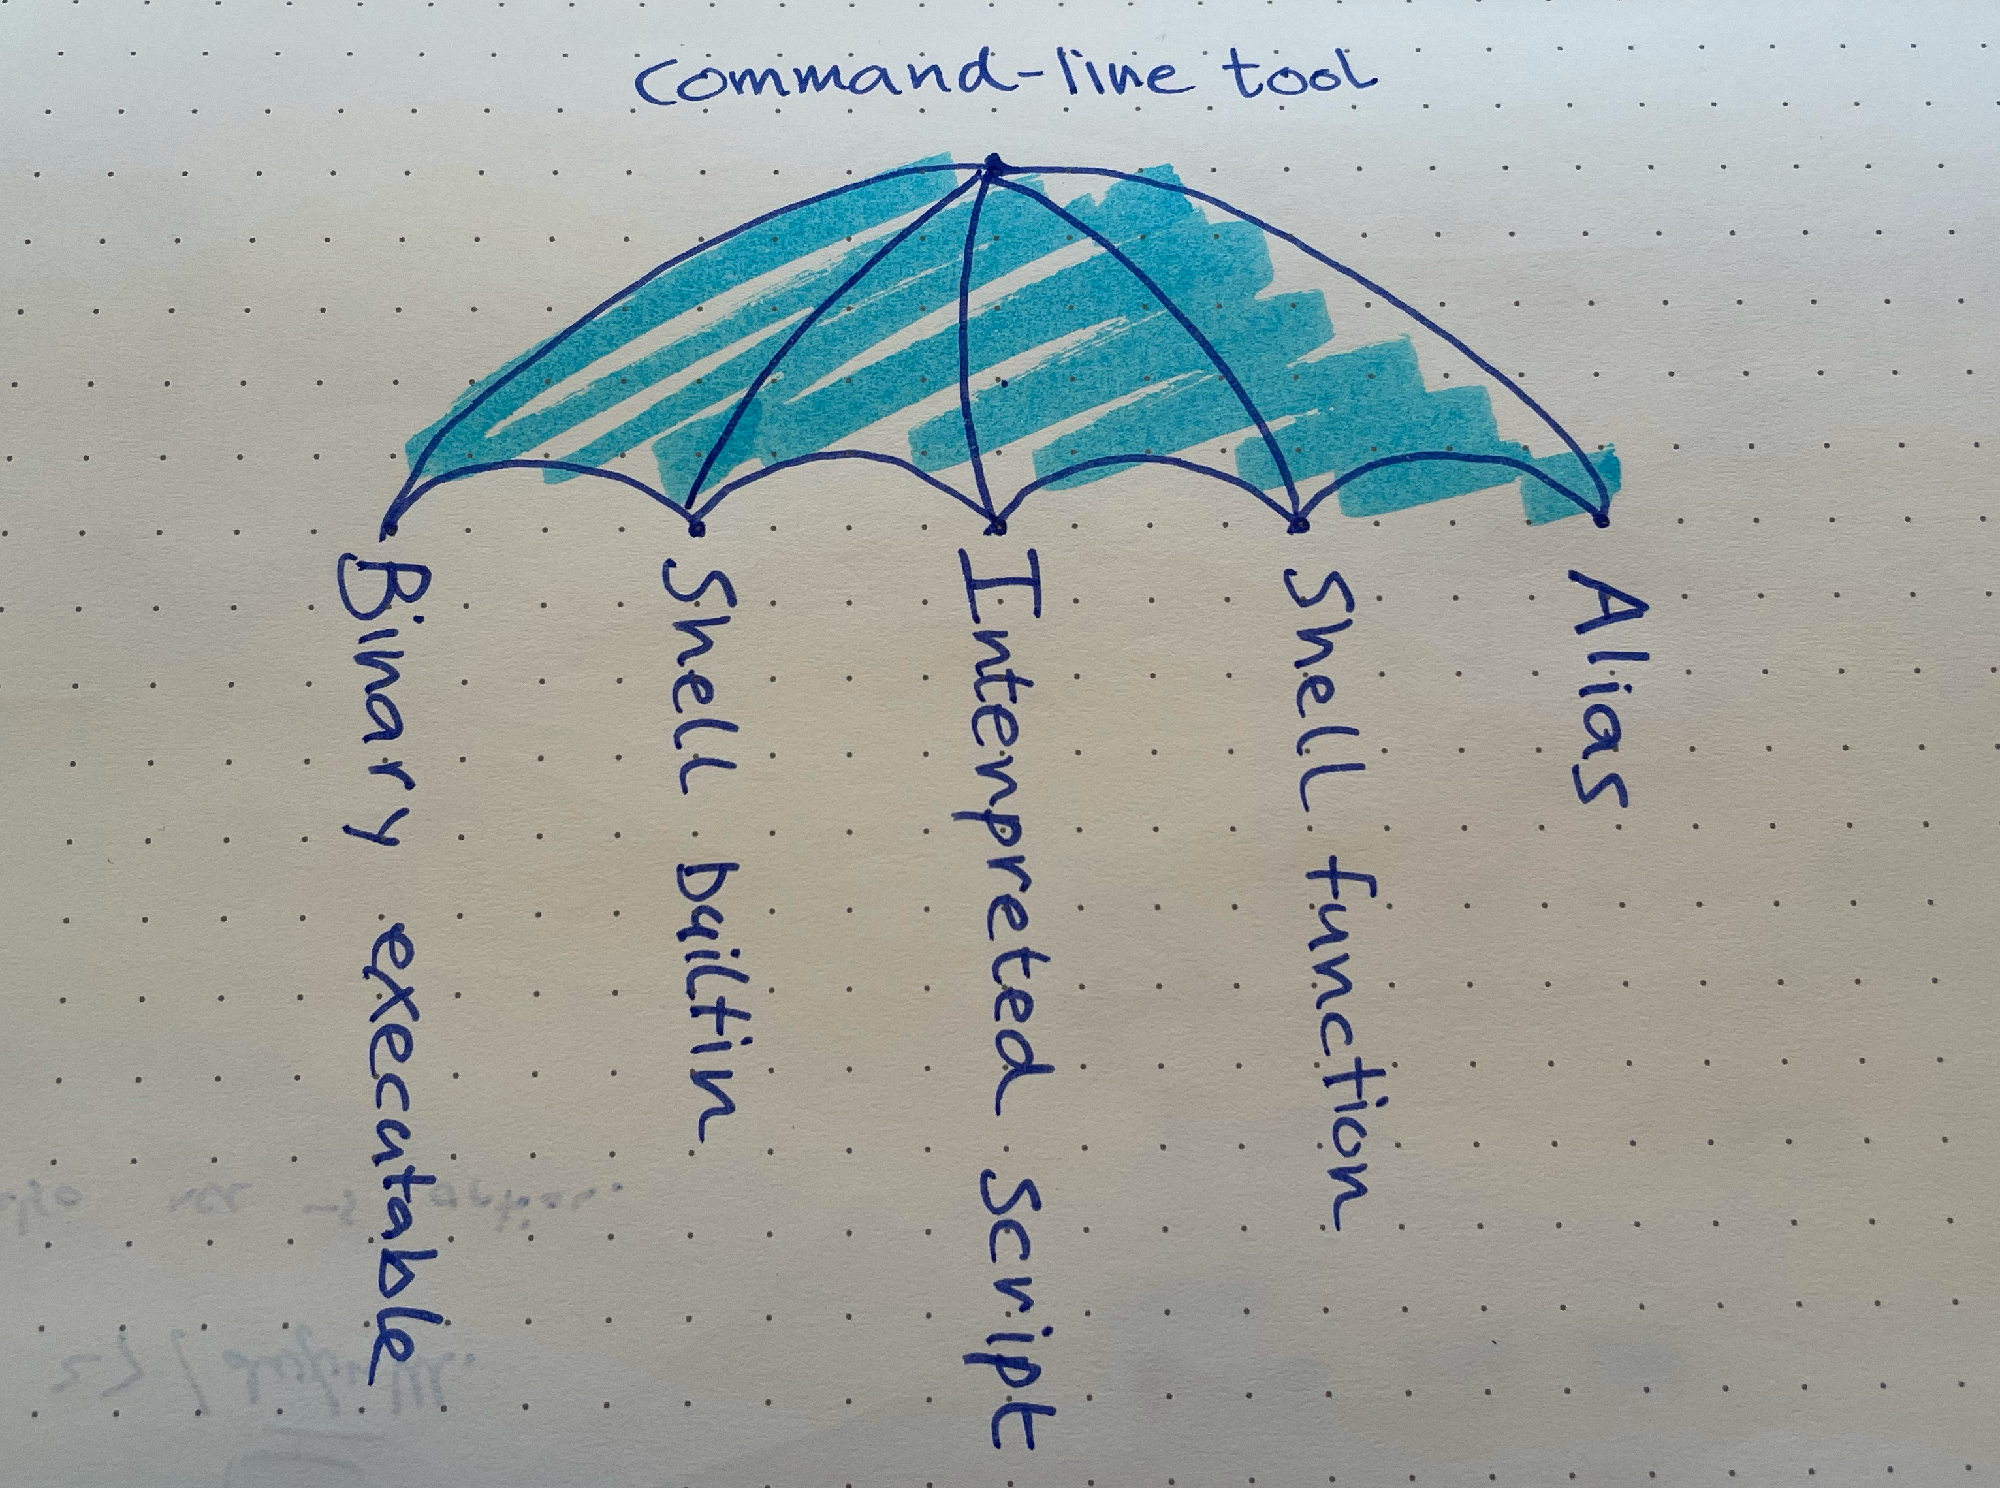 command-line tool
Binary executable
Shell builtin
Interpreted Script
Shell function
Alias